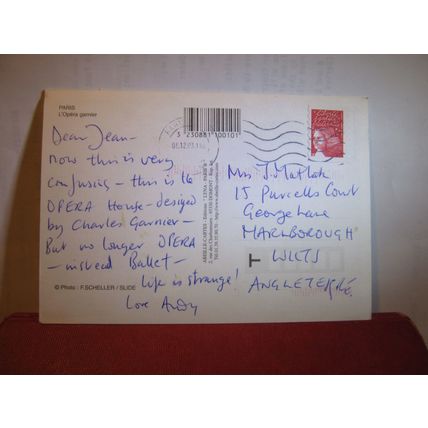 PARIS
L'Opéra garnier
Dear Jean -
now this is very
confusing - this is the
OPERA House - designed
by Charles Garnier -
But no longer OPERA
- instead Ballet -
Life is strange!
Love Andy
© Photo : F.SCHELLER / SLIDE
3 230881 100101
Mrs J. Matlak
15 Purcells Court
George Lane
MARLBOROUGH
WILTS
ANGLETERRE